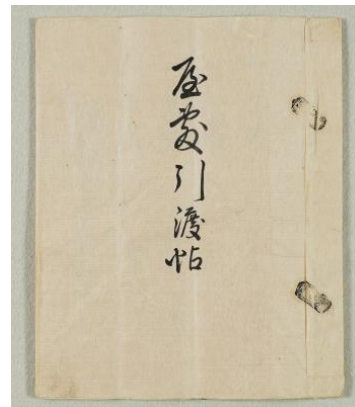 屋敷引渡帖